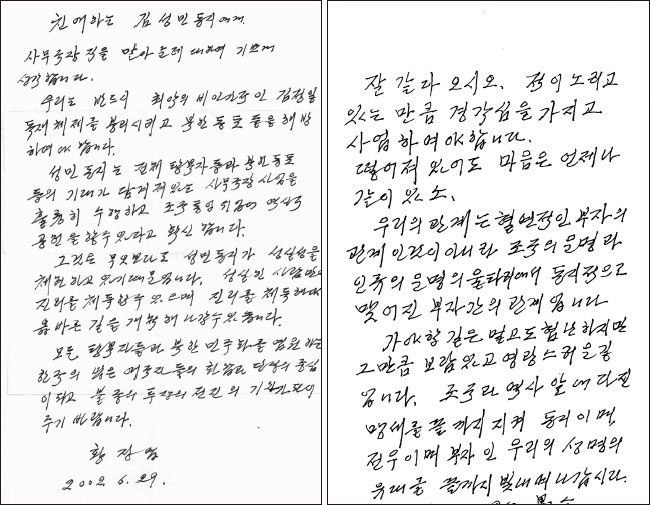 친애하는 김성민 동지에게
사무국장직을 맡아 준데 대하여 기쁘게
생각합니다.
우리는 반드시 최악의 비인간적인 김정일
독재체제를 붕괴시키고 북한동포들을 해방
하여야 합니다.
성민 동지는 전체 탈북자들과 북한동포
들의 기대가 담겨져있는 사무국장 사업을
훌륭히 수행하고 조국통일 위업에 역사적
공헌을 할수 있다고 확신합니다.
그것은 무엇보다도 성민동지가 성실성을
체현하고 있기때문입니다. 성실한 사람만이
진리를 체득할수 있으며 진리를 체득해야
올바른 길을 개척해 나갈수 있습니다.
모든 탈북자들과 북한 민주화를 염원하는
한국의 많은 애국자들의 화합과 단결의 중심
이 되고 불굴의 투쟁의 전진의 기관차가 되어
주기 바랍니다.
황장엽
2002. 6. 29.
잘 갔다 오시오. 적이 노리고
있는 만큼 경각심을 가지고
사업하여야 합니다.
떨어져 있어도 마음은 언제나
같이 있소.
우리의 관계는 혈연적인 부자의
관계인것이 아니라 조국의 운명과
인류의 운명의 울타리에서 동지적으로
맺어진 부자간의 관계입니다
가야할 길은 멀고도 험난하지만
그만큼 보람있고 영광스러운 길
입니다. 조국과 역사 앞에 다진
맹세를 끝까지 지켜 동지이며,
전우이며 부자인 우리의 생명의
유대를 끝까지 빛내며 나갑시다.